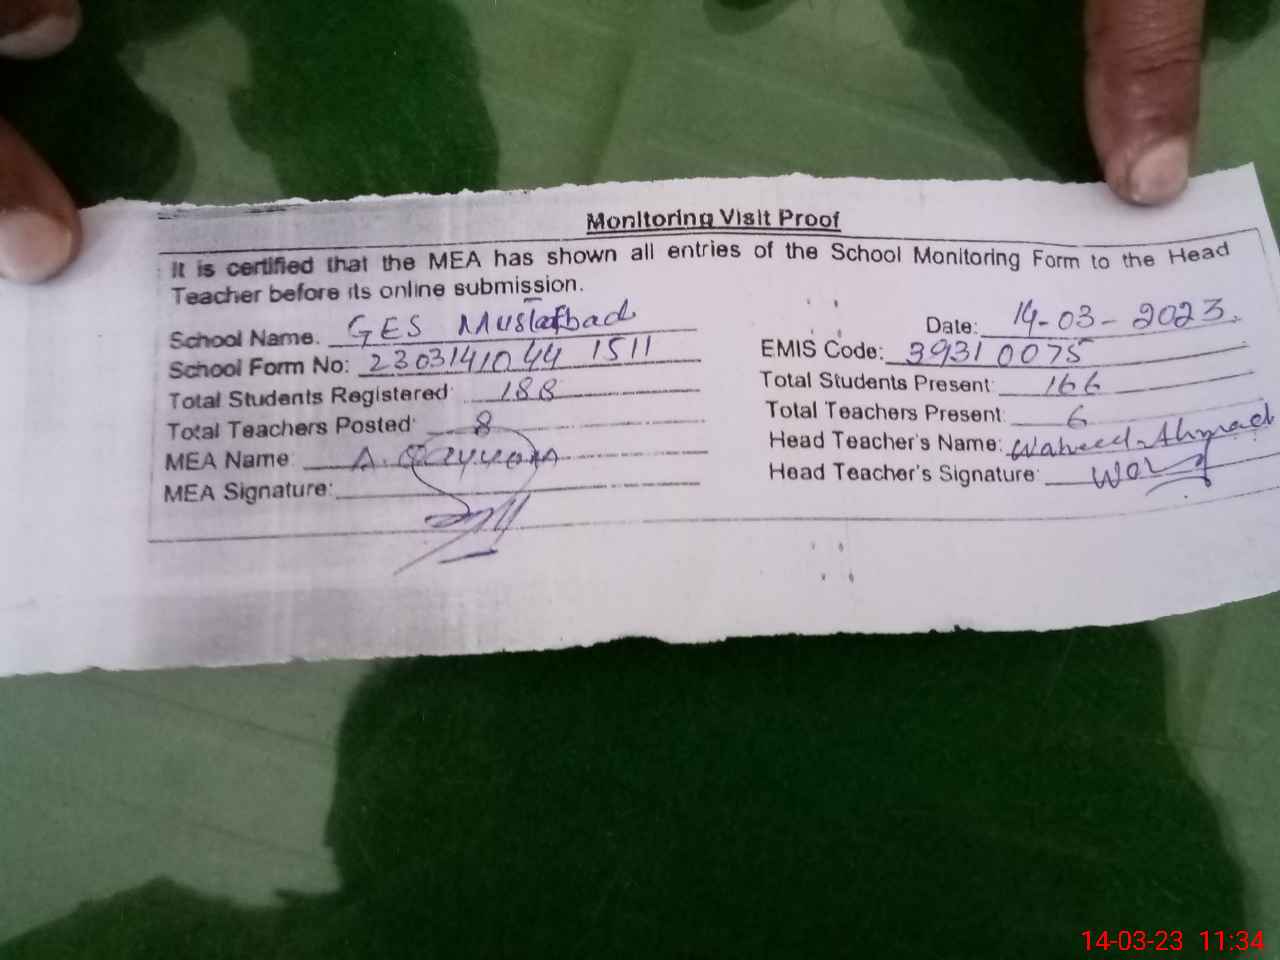 Monitoring Visit Proof
It is certified that the MEA has shown all entries of the School Monitoring Form to the Head
Teacher before its online submission.
School Name. GES Mustafbad Date: 14-03-2023.
School Form No: 2303141044 1511 EMIS Code: 39310075
Total Students Registered: 188 Total Students Present: 166
Total Teachers Posted: 8 Total Teachers Present: 6
MEA Name: A. Qayyom Head Teacher's Name: Waheed Ahmad
MEA Signature: Head Teacher's Signature:
14-03-23 11:34